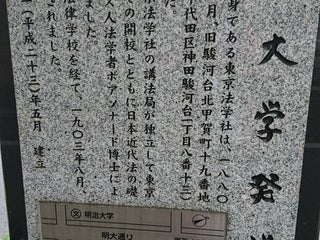 大学発
身である東京法学社は、一八八〇
月、旧駿河台北甲賀町十九番地
代田区神田駿河台二丁目八番十三)
京法学社の講法局が独立して東京
の開校とともに日本近代法の礎
ス人法学者ボアソナード博士によ
ました。
律学校を経て、一九〇三年八月、
されました。
(平成二十三)年五月 建立
文 明治大学
明大通り